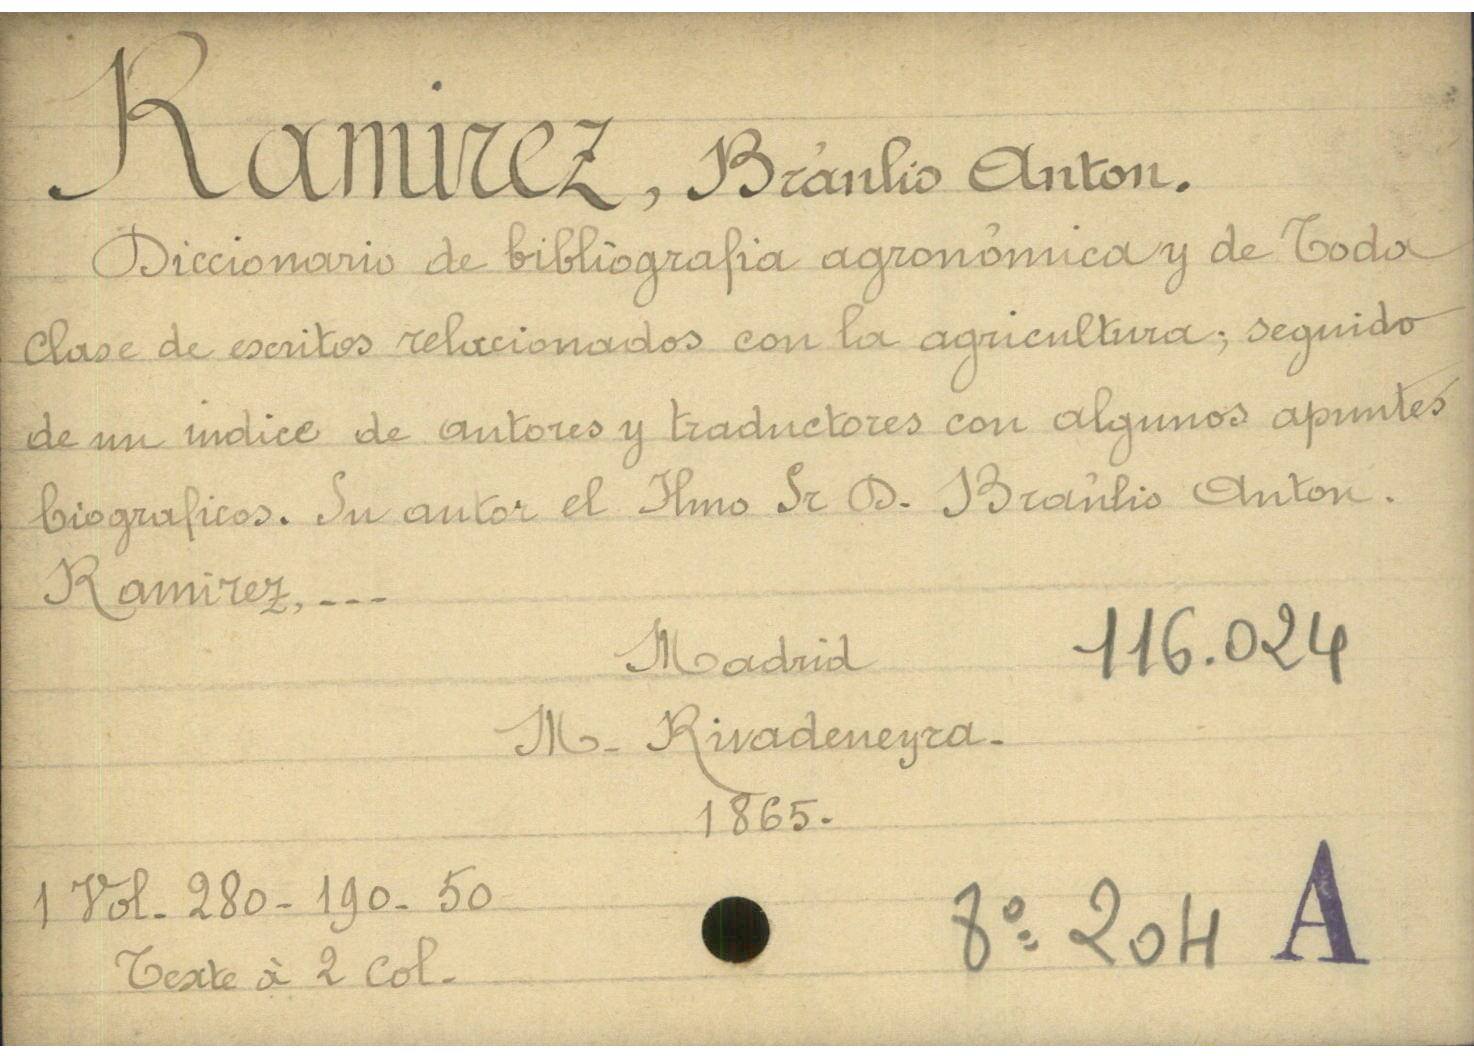 Ramirez, Bráulio Anton.
Diccionario de bibliografia agronómica y de Toda
Clase de escritos relacionados con la agricultura; seguido
de un indice de autores y traductores con algunos apuntes
biograficos. Su autor el Ilmo Sr D. Bráulio Anton.
Ramirez, ---
Madrid
116.024
M- Rivadeneyra-
1865-
1 Vol- 280- 190- 50
8º: 204 A
Texte à 2 Col-